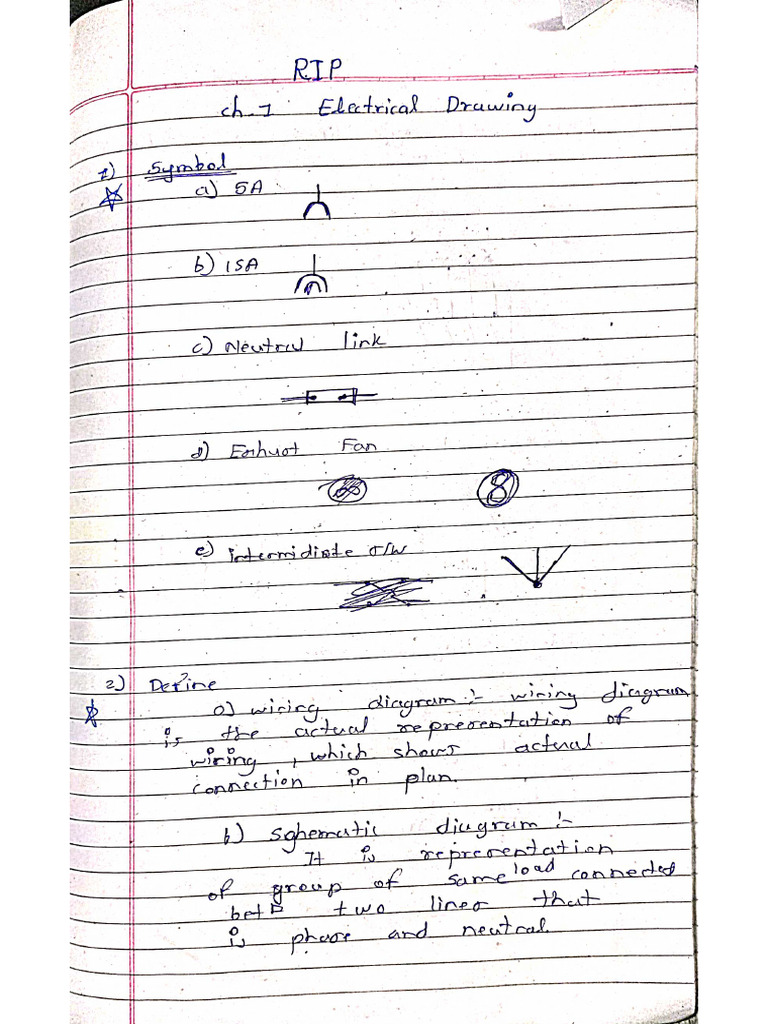 RIP
ch-1 Electrical Drawing
1) Symbol
a) 5A
b) 15A
c) Neutral link
d) Exhuot Fan
e) intermidiate s/w
2) Define
a) wiring diagram :- wiring diagram
is the actual representation of
wiring, which shows actual
connection in plan.
b) Sghematic diagram :-
It is representation
of group of same load connected
betn two lines that
is phase and neutral.